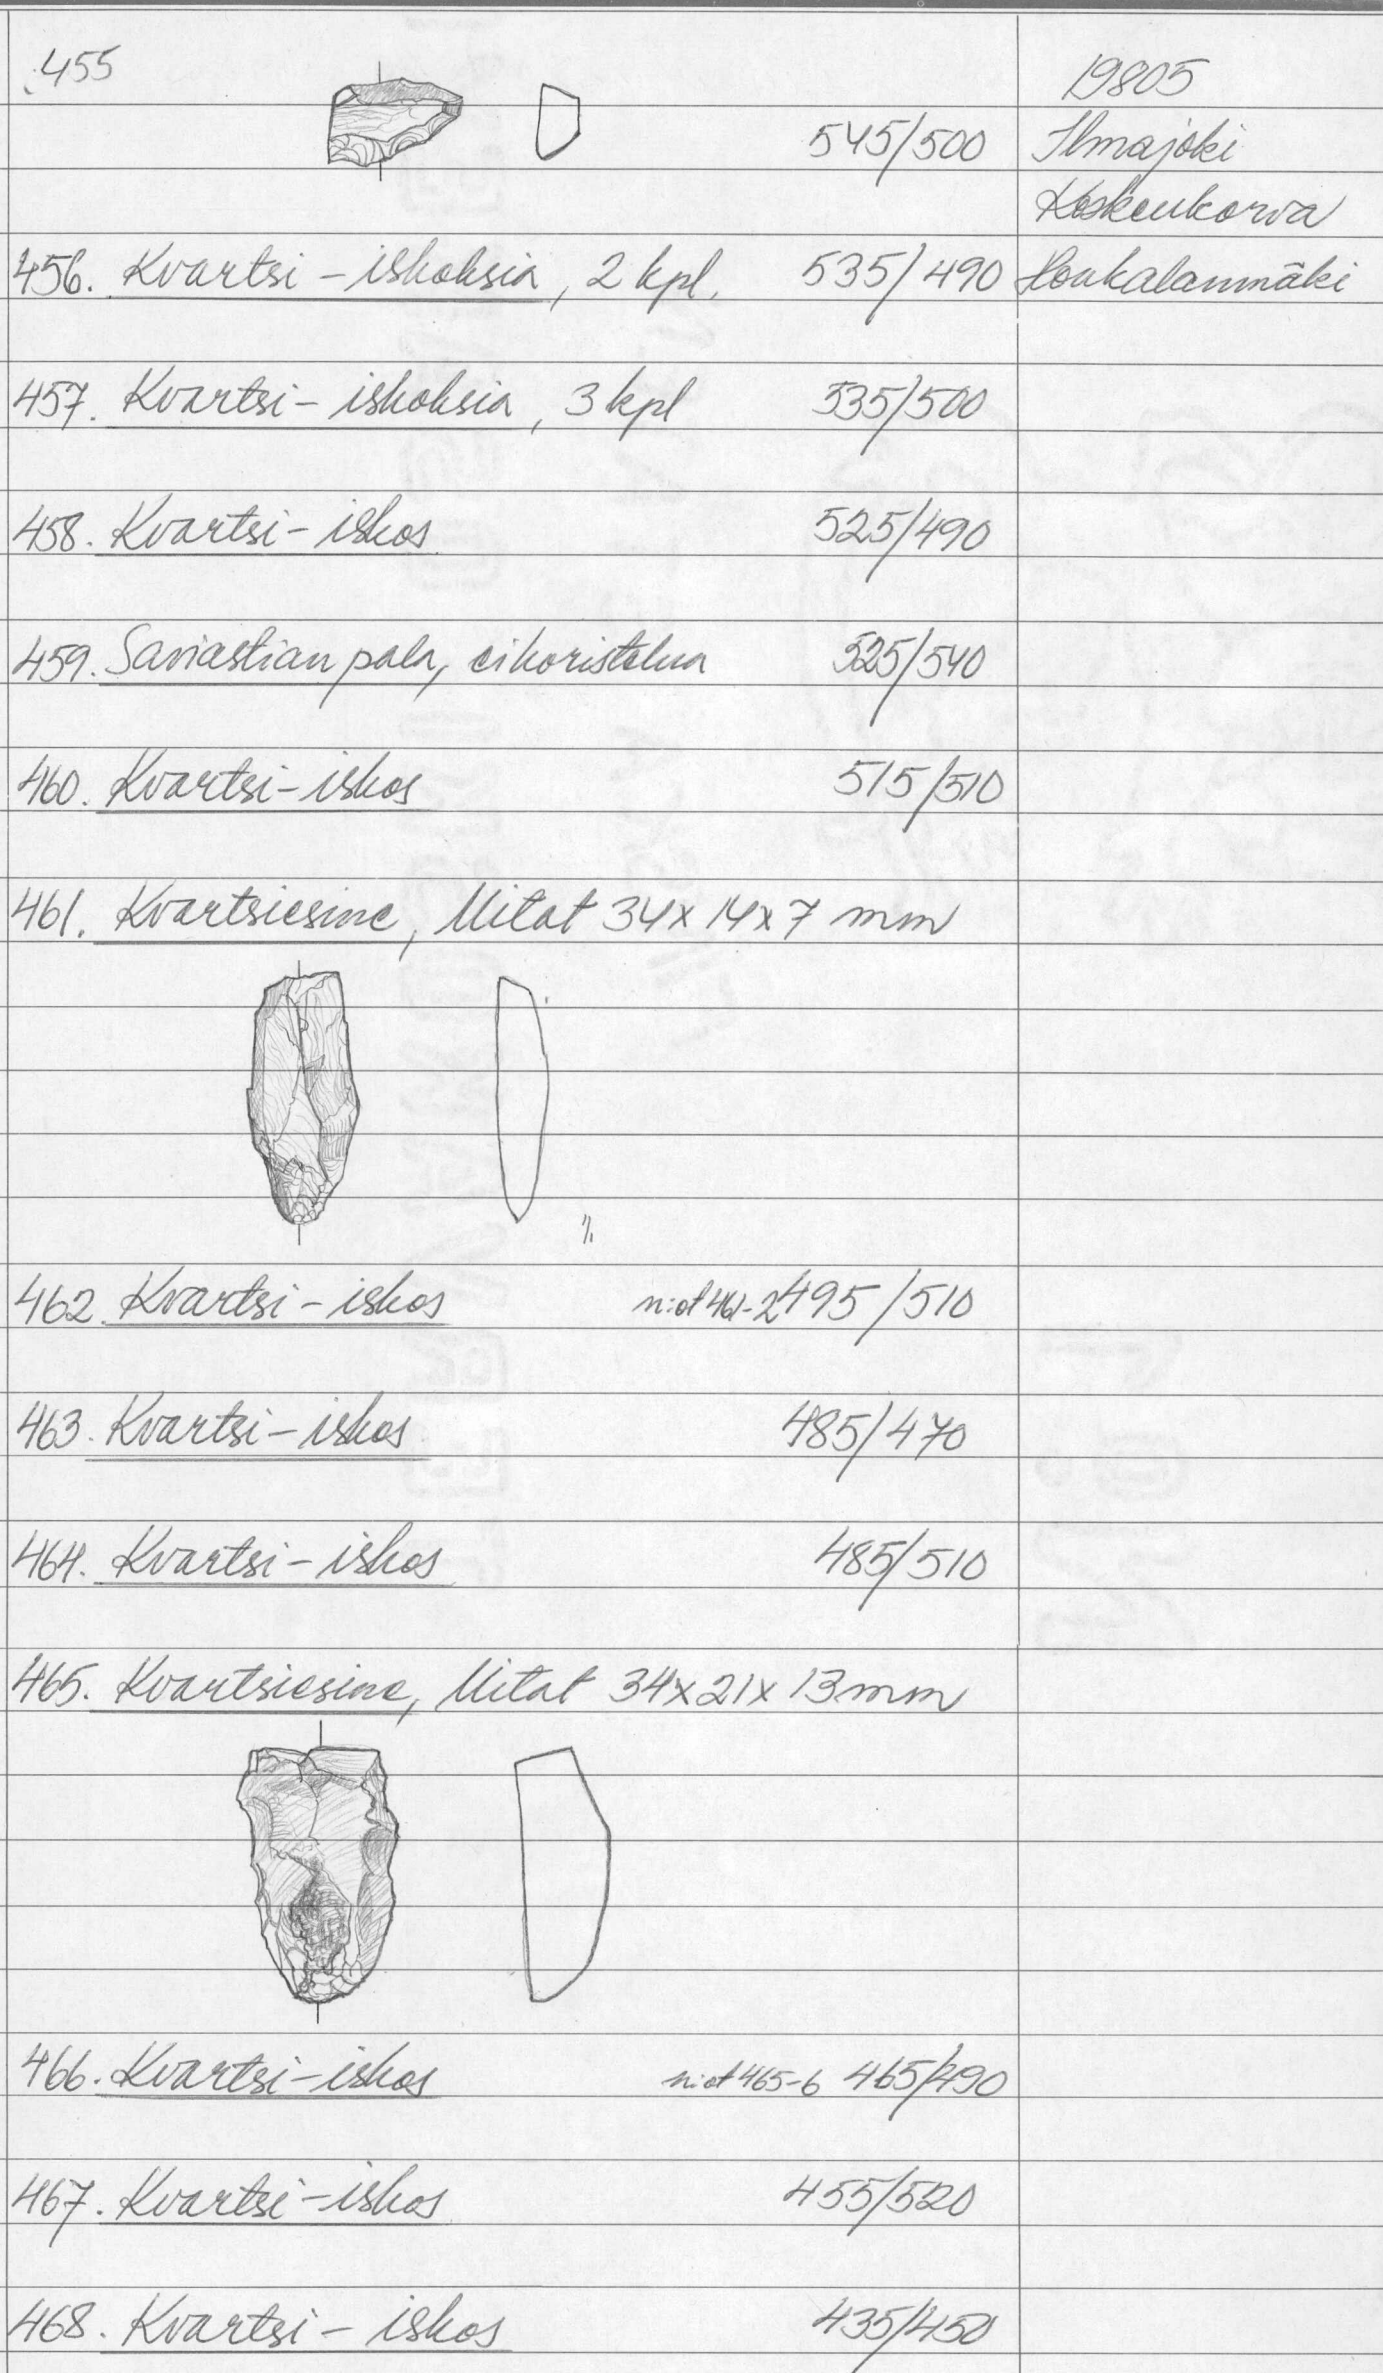 455
19805
545/500 Ilmajoki
Koskenkorva
456. Kvartsi-iskoksia, 2 kpl. 535/490 Houkalanmäki
457. Kvartsi-iskoksia, 3 kpl 535/500
458. Kvartsi-iskos 525/490
459. Saviastian pala, ei koristelua 525/540
460. Kvartsi-iskos 515/510
461. Kvartsiesine, Mitat 34x14x7 mm
462. Kvartsi-iskos n:ot 461-2 495/510
463. Kvartsi-iskos 485/470
464. Kvartsi-iskos 485/510
465. Kvartsiesine, Mitat 34x21x13mm
466. Kvartsi-iskos n:ot 465-6 465/490
467. Kvartsi-iskos 455/520
468. Kvartsi-iskos 435/450